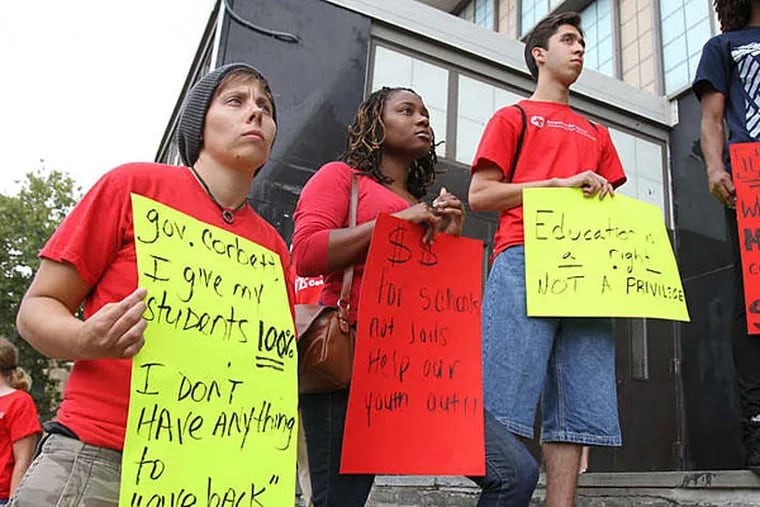 gov. Corbett,
I give my
students 100%
I DON'T
HAVE ANYthing
to
"give back"
$$
for schools
not Jails
Help our
youth out!!
Education is
a right
NOT A PRIVILEGE